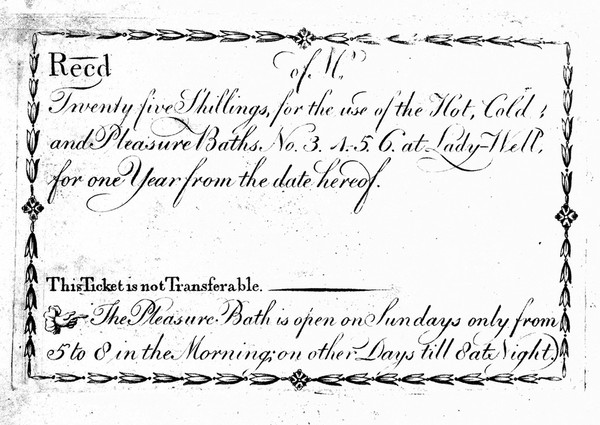 Recd of Mr
Twenty five Shillings, for the use of the Hot, Cold,
and Pleasure Baths. No. 3. 4. 5. 6. at Lady-Well,
for one Year from the date hereof.
This Ticket is not Transferable.
The Pleasure Bath is open on Sundays only from
5 to 8 in the Morning; on other Days till 8 at Night.